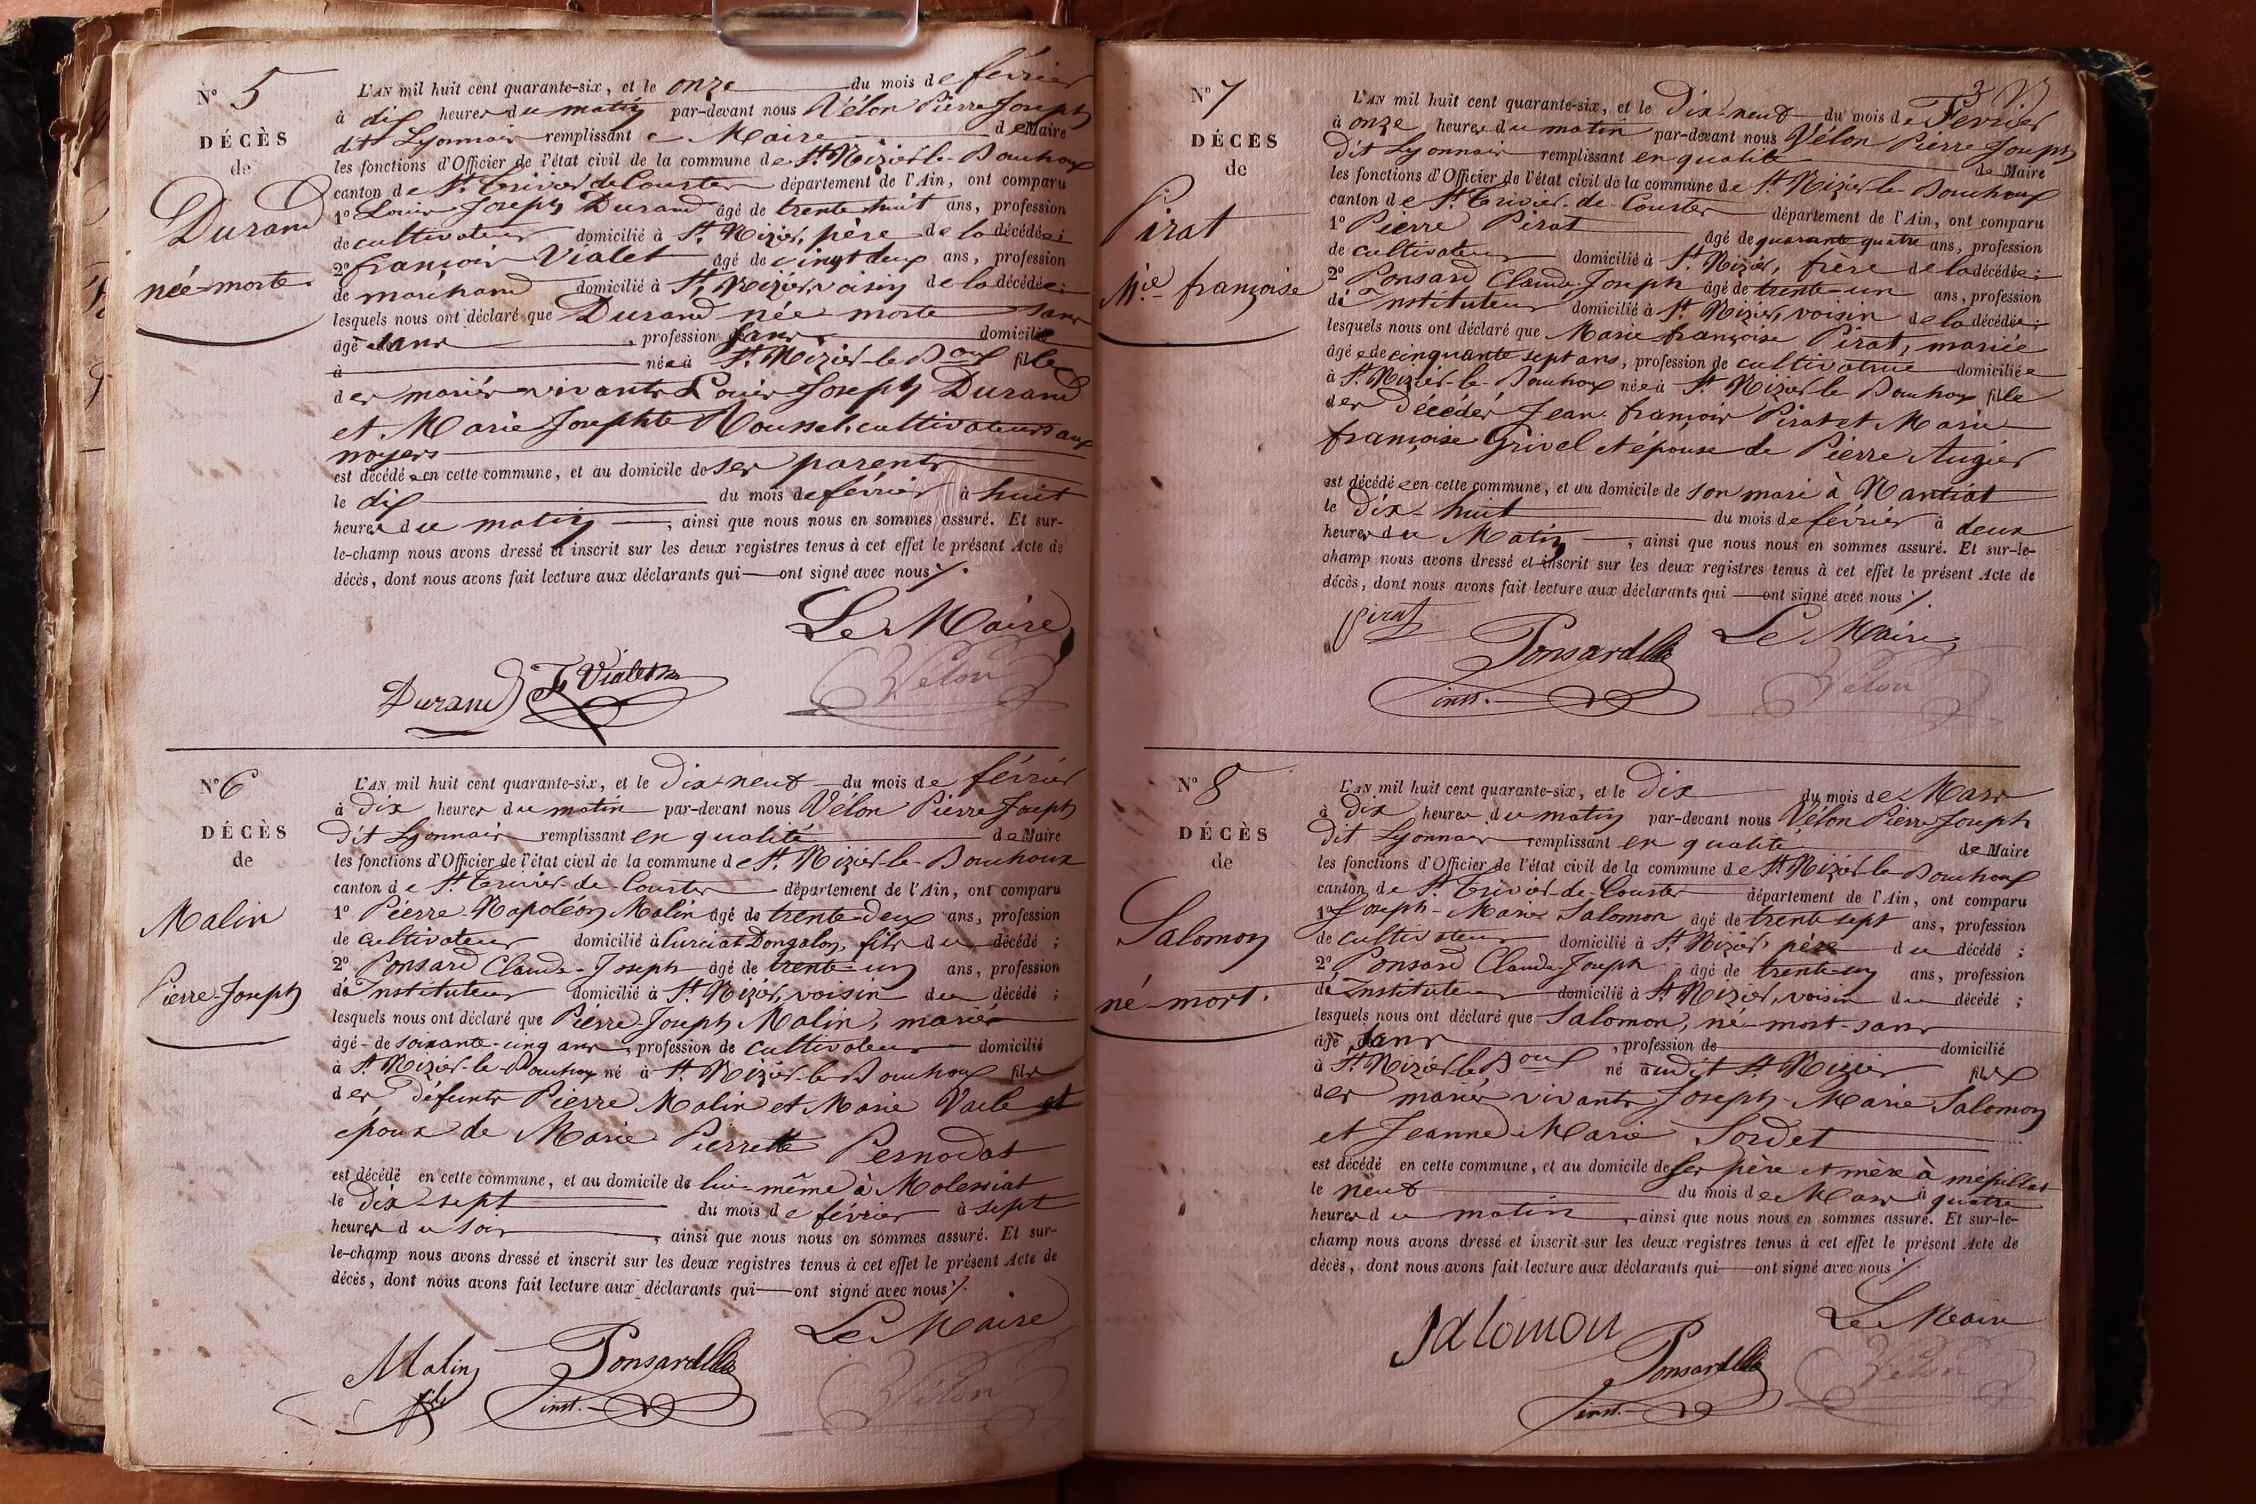 N° 5
DÉCÈS
de
Durand
née morte
L'AN mil huit cent quarante-six, et le onze du mois de février
à dix heures du matin par-devant nous Vélon Pierre Joseph
dit Lyonnais remplissant Maire de Maire
les fonctions d'Officier de l'état civil de la commune de St. Nizier-le-Bouhoux
canton de St. Trivier de Courtes département de l'Ain, ont comparu
1° Louis Joseph Durand âgé de trente huit ans, profession
de cultivateur domicilié à St. Nizier, père de la décédée ;
2° françois Vialet âgé de vingt deux ans, profession
de marchand domicilié à St. Nizier, voisin de la décédée ;
lesquels nous ont déclaré que Durand née morte sans
âgé sans , profession sans domicilié
à née à St. Nizier-le-Boux fille
des mariés vivants Louis Joseph Durand
et Marie Josephte Roussel, cultivateurs aux
noyers
est décédée en cette commune, et au domicile de ses parents
le dix du mois de février à huit
heures du matin , ainsi que nous nous en sommes assuré. Et sur-
le-champ nous avons dressé et inscrit sur les deux registres tenus à cet effet le présent Acte de
décès, dont nous avons fait lecture aux déclarants qui — ont signé avec nous ./.
Le Maire
Durand F. Vialet Vélon
N° 6
DÉCÈS
de
Malin
Pierre-Joseph
L'AN mil huit cent quarante-six, et le dix-neuf du mois de février
à dix heures du matin par-devant nous Vélon Pierre Joseph
dit Lyonnais remplissant en qualité de Maire
les fonctions d'Officier de l'état civil de la commune de St. Nizier-le-Bouhoux
canton de St. Trivier-de-Courtes département de l'Ain, ont comparu
1° Pierre-Napoléon Malin âgé de trente-deux ans, profession
de cultivateur domicilié à Curciat Dongalon, fils du décédé ;
2° Ponsard Claude-Joseph âgé de trente-un ans, profession
de Instituteur domicilié à St. Nizier, voisin du décédé ;
lesquels nous ont déclaré que Pierre-Joseph Malin, marié
âgé de soixante-cinq ans, profession de cultivateur domicilié
à St. Nizier-le-Bouhoux né à St. Nizier-le-Bouhoux fils
des défunts Pierre Malin et Marie Vaile et
époux de Marie Pierrette Pernodat
est décédé en cette commune, et au domicile de lui-même à Molessiat
le dix-sept du mois de février à sept
heures du soir , ainsi que nous nous en sommes assuré. Et sur-
le-champ nous avons dressé et inscrit sur les deux registres tenus à cet effet le présent Acte de
décès, dont nous avons fait lecture aux déclarants qui — ont signé avec nous ./.
Le Maire
Malin fils Ponsard inst. Vélon
3
N° 7
DÉCÈS
de
Pirat
Mie. françoise
L'AN mil huit cent quarante-six, et le Dix-neuf du mois de Février
à onze heures du matin par-devant nous Vélon Pierre Joseph
dit Lyonnais remplissant en qualité de Maire
les fonctions d'Officier de l'état civil de la commune de St. Nizier-le-Bouhoux
canton de St. Trivier-de-Courtes département de l'Ain, ont comparu
1° Pierre Pirat âgé de quarante quatre ans, profession
de cultivateur domicilié à St. Nizier, frère de la décédée ;
2° Ponsard Claude Joseph âgé de trente-un ans, profession
de Instituteur domicilié à St. Nizier, voisin de la décédée ;
lesquels nous ont déclaré que Marie françoise Pirat, mariée
âgée de cinquante sept ans, profession de cultivatrice domiciliée
à St. Nizier-le-Bouhoux née à St. Nizier le Bouhoux fille
des décédés Jean françois Pirat et Marie
françoise Grivel et épouse de Pierre Augier
est décédée en cette commune, et au domicile de son mari à Nantiat
le dix-huit du mois de février à deux
heures du Matin , ainsi que nous nous en sommes assuré. Et sur-le-
champ nous avons dressé et inscrit sur les deux registres tenus à cet effet le présent Acte de
décès, dont nous avons fait lecture aux déclarants qui — ont signé avec nous ./.
pirat Le Maire
Ponsard inst. Vélon
N° 8
DÉCÈS
de
Salomon
né-mort.
L'AN mil huit cent quarante-six, et le dix du mois de Mars
à dix heures du matin par-devant nous Vélon Pierre Joseph
dit Lyonnais remplissant en qualité de Maire
les fonctions d'Officier de l'état civil de la commune de St. Nizier le Bouhoux
canton de St. Trivier-de-Courtes département de l'Ain, ont comparu
1° Joseph-Marie Salomon âgé de trente sept ans, profession
de cultivateur domicilié à St. Nizier, père du décédé ;
2° Ponsard Claude Joseph âgé de trente-un ans, profession
de Instituteur domicilié à St. Nizier, voisin du décédé ;
lesquels nous ont déclaré que Salomon, né-mort-sans
âgé sans , profession de domicilié
à St. Nizier le Boux né audit St. Nizier fils
des mariés vivants Joseph-Marie Salomon
et Jeanne Marie Sordet
est décédé en cette commune, et au domicile de ses père et mère à mépillat
le neuf du mois de Mars à quatre
heures du matin , ainsi que nous nous en sommes assuré. Et sur-le-
champ nous avons dressé et inscrit sur les deux registres tenus à cet effet le présent Acte de
décès, dont nous avons fait lecture aux déclarants qui — ont signé avec nous ./.
Le Maire
Salomon Ponsard inst. Vélon